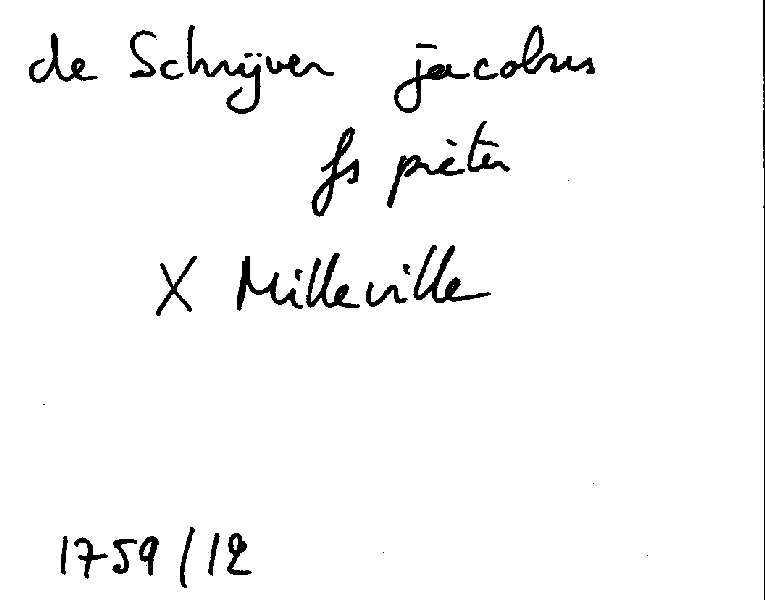 de Schrijver jacobus
fs pieter
X Milleville
1759/12